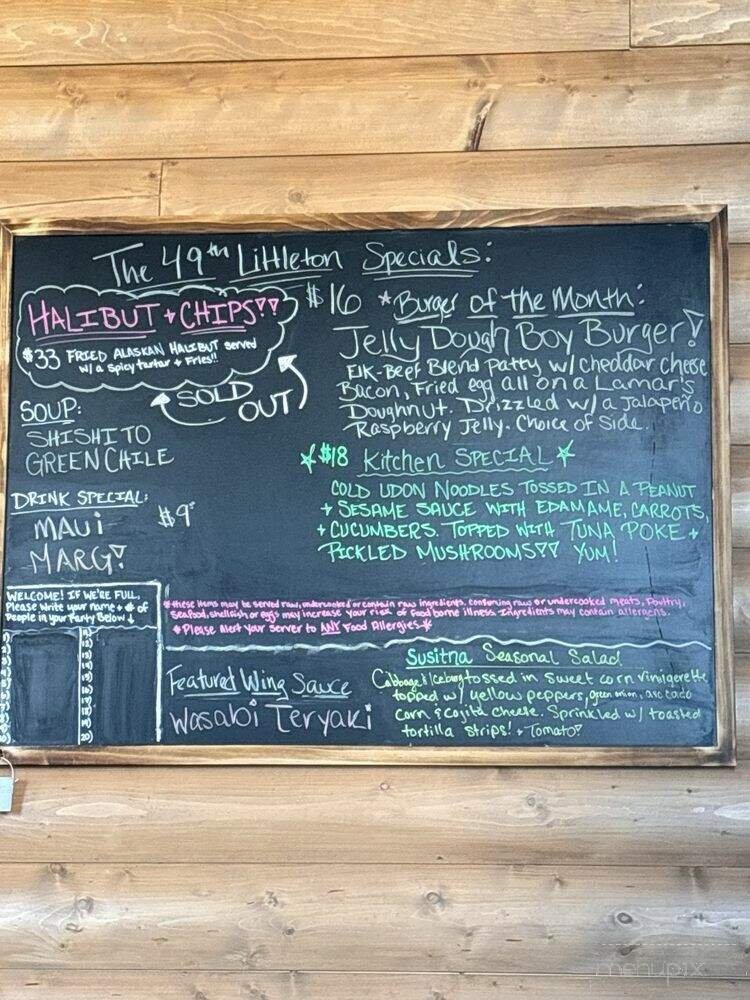 The 49th Littleton Specials:
HALIBUT + CHIPS!!
$33 FRIED ALASKAN HALIBUT served
w/ a spicy tartar + Fries!!
SOLD
OUT
SOUP:
SHISHITO
GREEN CHILE
DRINK SPECIAL:
MAUI $9
MARG!
$16 *Burger of the Month:
Jelly Dough Boy Burger!
Elk-Beef Blend Patty w/ cheddar cheese
Bacon, Fried egg all on a Lamar's
Doughnut. Drizzled w/ a Jalapeño
Raspberry Jelly. Choice of Side.
$18 Kitchen SPECIAL
COLD UDON NOODLES TOSSED IN A PEANUT
+ SESAME SAUCE WITH EDAMAME, CARROTS,
+ CUCUMBERS. TOPPED WITH TUNA POKE +
PICKLED MUSHROOMS!! YUM!
WELCOME! IF WE'RE FULL,
Please write your name + # of
People in your Party Below ↓
*these items may be served raw, undercooked or contain raw ingredients. consuming raw or undercooked meats, Poultry,
seafood, shellfish or eggs may increase your risk of food borne illness. Ingredients may contain allergens.
*Please Alert your server to ANY Food Allergies*
Featured Wing Sauce
Wasabi Teryaki
Susitna Seasonal Salad
Cabbage & Iceburg tossed in sweet corn vinigerette
topped w/ yellow peppers, green onion, avacado
corn & cojita cheese. Sprinkled w/ toasted
tortilla strips! + Tomato!
11)
12)
13)
14)
15)
16)
17)
18)
19)
20)
menupix